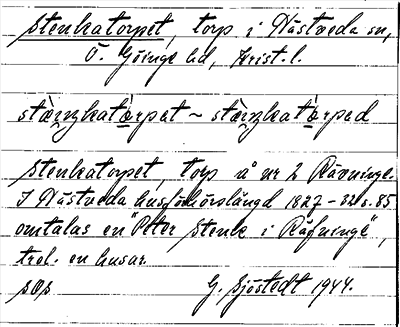 Stenkatorpet, torp i Nästveda sn,
Ö. Göinge hd, Krist. l.
Stenkatorpet, torp å nr 2 Rävninge.
I Nästveda husförhörslängd 1827-32 s. 85
omtalas en "Peter Stenk i Räfninge",
trol. en husar.
G. Sjöstedt 1944.